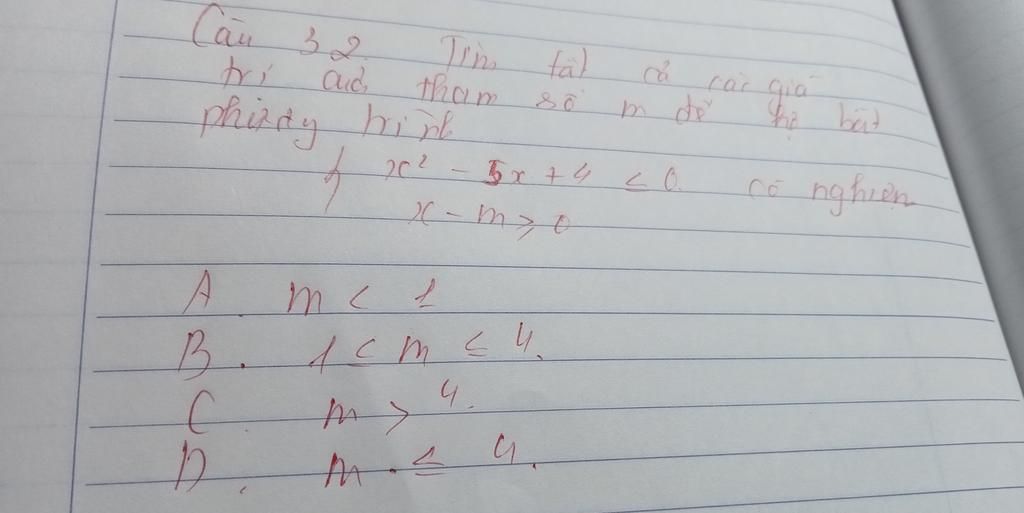 Câu 32. Tìm tất cả các giá
trị của tham số m để hệ bất
phương trình
{ x² - 5x + 4 < 0 có nghiệm
x - m ≥ 0
A. m < 1
B. 1 ≤ m ≤ 4.
C. m > 4.
D. m ≤ 4.